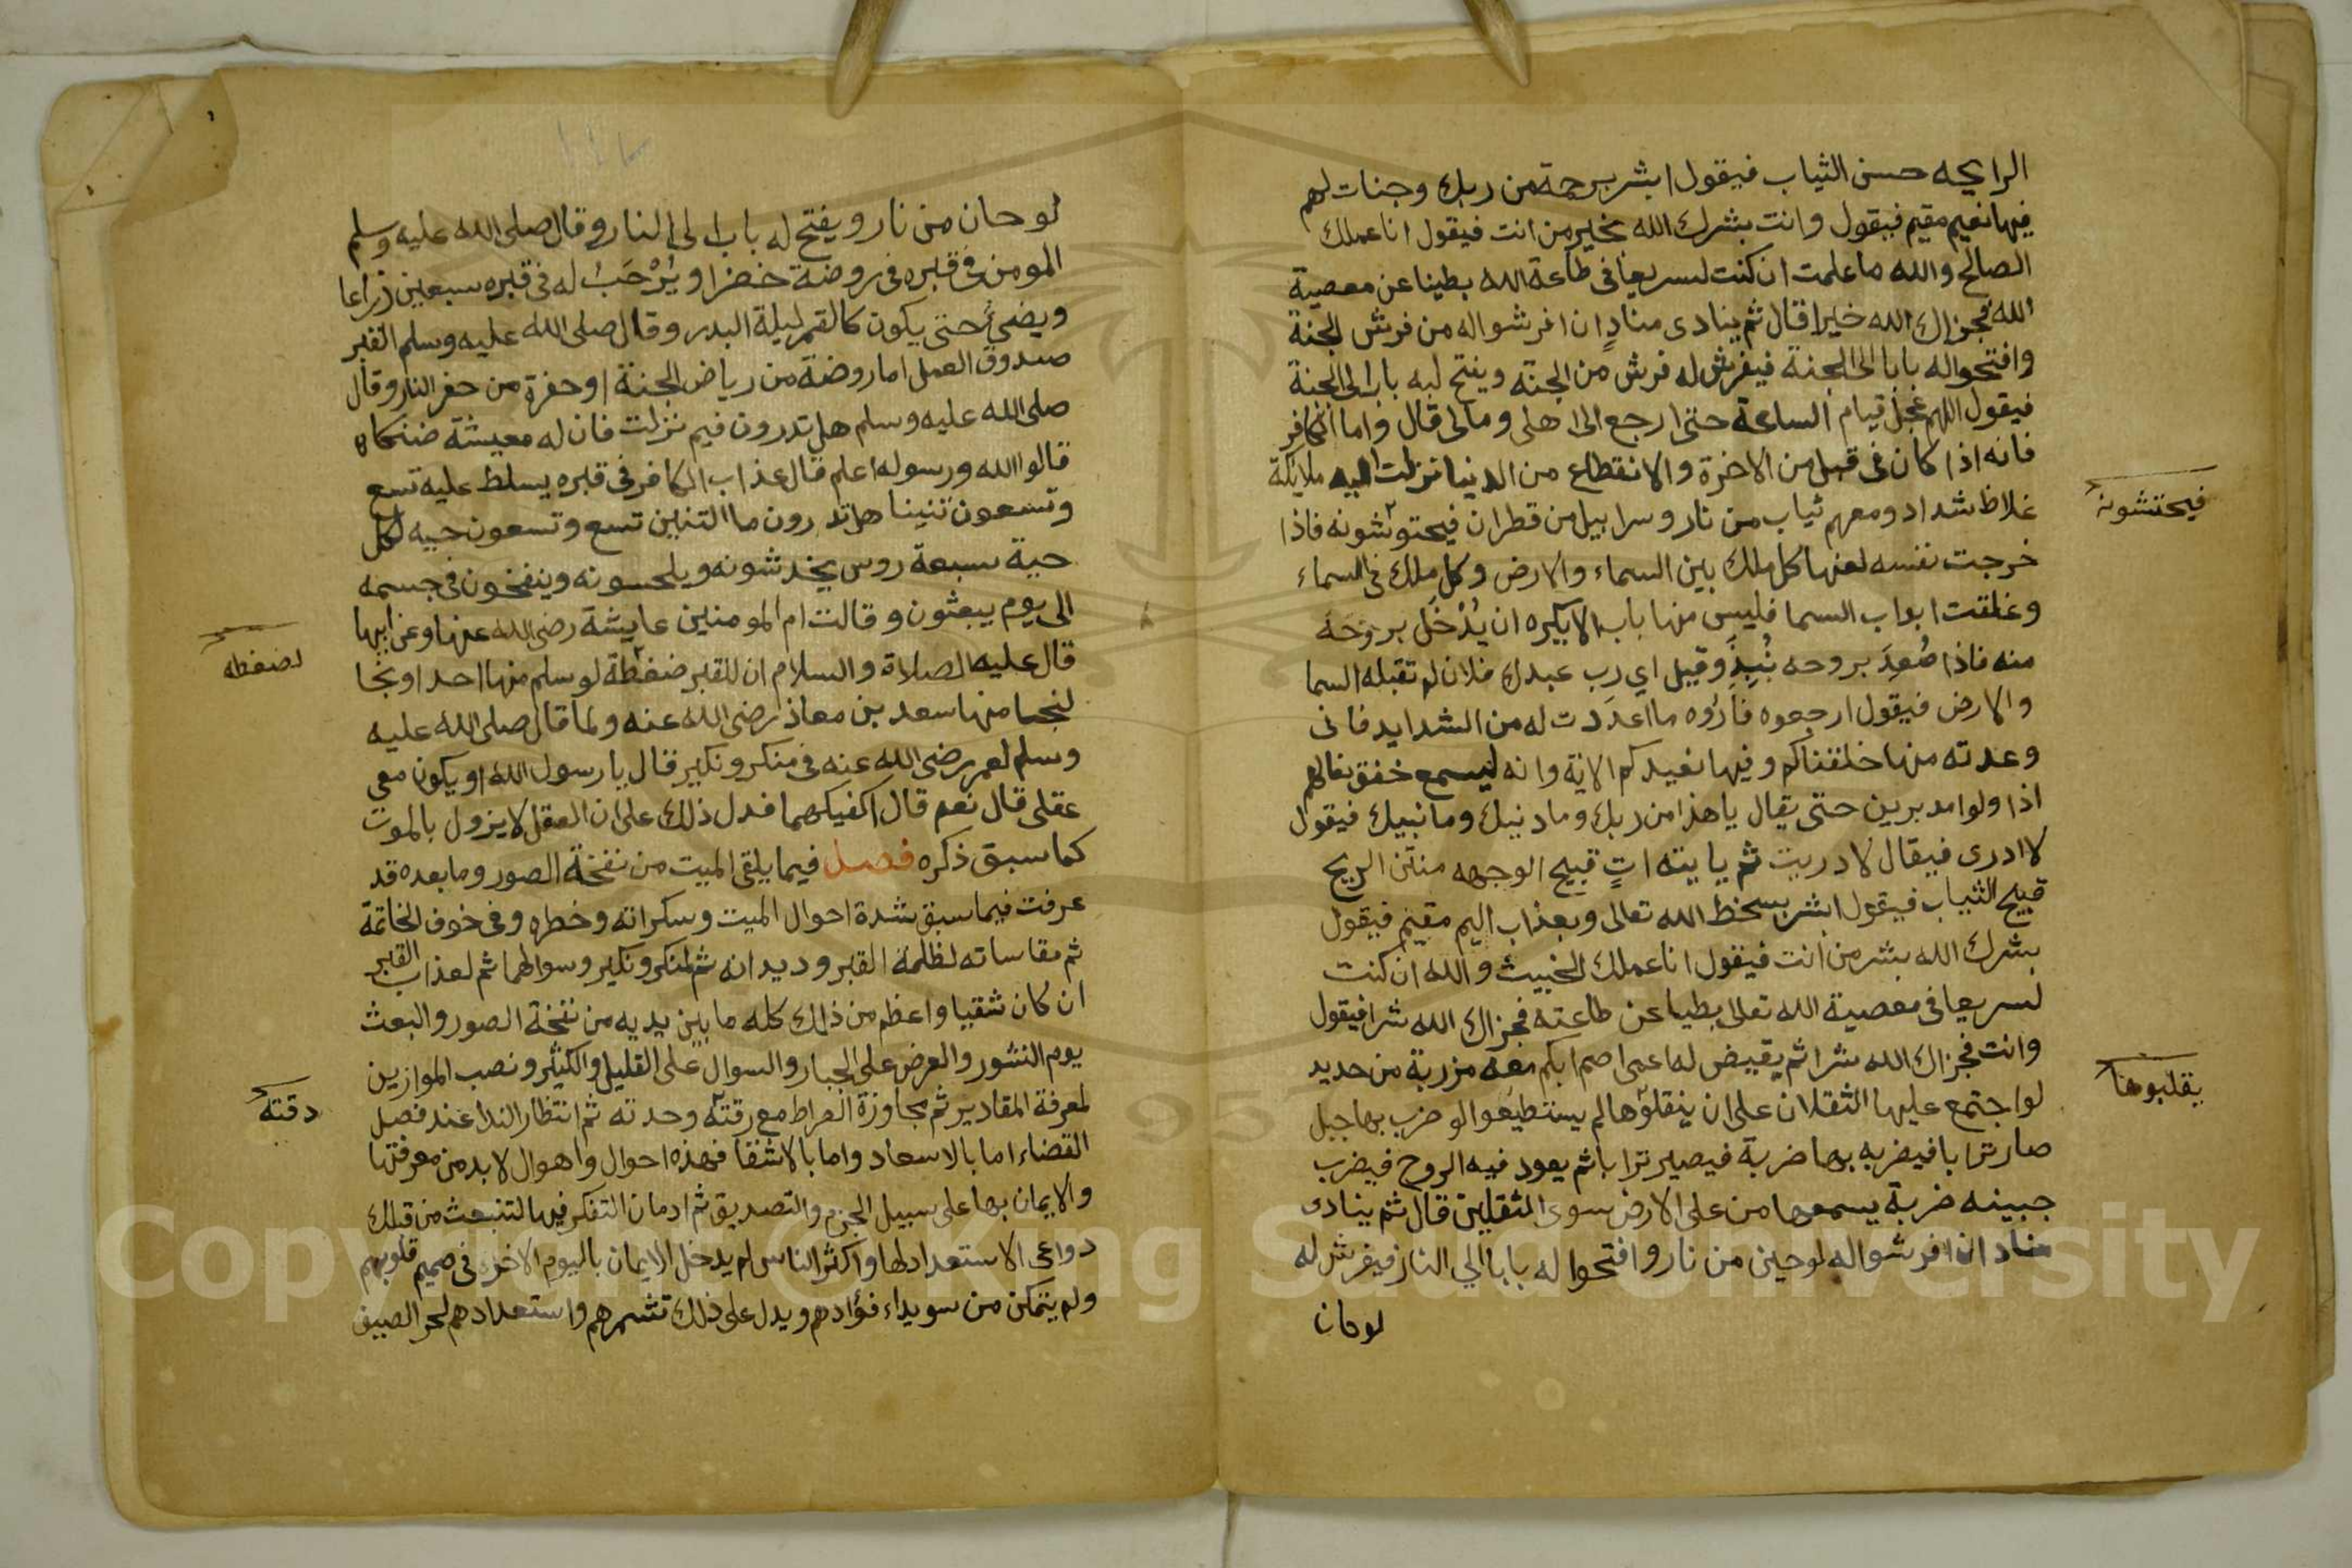 الرايحه حسن الثياب فيقول ابشر برحمة من ربك وجنات لهم
فيها نعيم مقيم فيقول وانت بشرك الله بخير من انت فيقول انا عملك
الصالح والله ما علمت ان كنت لسريعا في طاعة الله بطيئا عن معصية
الله فجزاك الله خيرا قال ثم ينادى منادٍ ان افرشوا له من فرش الجنة
وافتحوا له بابا الى الجنة فيفرش له فرش من الجنة ويفتح له باب الى الجنة
فيقول اللهم عجل قيام الساعة حتى ارجع الى اهلى ومالى قال واما الكافر
فانه اذا كان فى قبل من الاخرة والانقطاع من الدنيا نزلت اليه ملايكة
غلاظ شداد ومعهم ثياب من نار وسرابيل من قطران فيحتوشونه فاذا
فيحتشونه
خرجت نفسه لعنها كل ملك بين السماء والارض وكل ملك فى السماء
وغلقت ابواب السما فليس منها باب الا يكره ان يُدْخَل بروحه
منه فاذا صُعِدَ بروحه نُبِذَ وقيل اي رب عبدك فلان لم تقبله السما
والارض فيقول ارجعوه فأروه ما اعددت له من الشدايد فانى
وعدته منها خلقناكم وفيها نعيدكم الاية وانه ليسمع خفق نعالهم
اذا ولوا مدبرين حتى يقال يا هذا من ربك وما دنيك وما نبيك فيقول
لا ادرى فيقال لا دريت ثم ياتيه اتٍ قبيح الوجهه منتن الريح
قبيح الثياب فيقول ابشر بسخط الله تعالى وبعذاب اليم مقيم فيقول
بشرك الله بشر من انت فيقول انا عملك الخبيث والله ان كنت
لسريعا فى معصية الله تعالى بطيا عن طاعته فجزاك الله شرا فيقول
وانت فجزاك الله شرا ثم يقيض له اعمى اصم ابكم معه مزربة من حديد
لو اجتمع عليها الثقلان على ان ينقلوها لم يستطيعوا لو ضرب بها جبل
يقلبوها
صار ترابا فيضربه بها ضربة فيصير ترابا ثم يعود فيه الروح فيضرب
جبينه ضربة يسمعها من على الارض سوى الثقلين قال ثم ينادى
مناد ان افرشوا له لوحين من نار وافتحوا له بابا الي النار فيفرش له
لوحان
لوحان من نار ويفتح له باب الى النار وقال صلى الله عليه وسلم
المومن فى قبره فى روضة خضرا ويُرْحَبُ له فى قبره سبعين ذراعا
ويضيء حتى يكون كالقمر ليلة البدر وقال صلى الله عليه وسلم القبر
صندوق العمل اما روضة من رياض الجنة او حفرة من حفر النار وقال
صلى الله عليه وسلم هل تدرون فيم نزلت فان له معيشة ضنكا
قالوا الله ورسوله اعلم قال عذاب الكافر فى قبره يسلط عليه تسع
وتسعون تنينا هل تدرون ما التنين تسع وتسعون حيه لكل
حية سبعة روس يخدشونه ويلحسونه وينفخون فى جسمه
الى يوم يبعثون وقالت ام المومنين عايشة رضى الله عنها وعن ابيها
قال عليه الصلاة والسلام ان للقبر ضغطة لو سلم منها احد او نجا
لضغطه
لنجا منها سعد بن معاذ رضى الله عنه ولما قال صلى الله عليه
وسلم لعمر رضى الله عنه فى منكر ونكير قال يا رسول الله او يكون معى
عقلى قال نعم قال اكفيكهما فدل ذلك على ان العقل لا يزول بالموت
كما سبق ذكره فصل فيما يلقى الميت من نفخة الصور وما بعده قد
عرفت فيما سبق شدة احوال الميت وسكراته وخطره وفى خوف الخاتمة
ثم مقاساته لظلمة القبر وديدانه ثم لمنكر ونكير وسوالهما ثم لعذاب القبر
ان كان شقيا واعظم من ذلك كله ما بين يديه من نفخة الصور والبعث
يوم النشور والعرض على الجبار والسوال على القليل والكثير ونصب الموازين
لمعرفة المقادير ثم مجاوزة الصراط مع رقته وحدته ثم انتظار الندا عند فصل
دقته
القضاء اما بالاسعاد واما بالاشقا فهذه احوال واهوال لا بد من معرفتها
والايمان بها على سبيل الجزم والتصديق ثم ادمان التفكر فيها لتنبعث من قبلك
دواعى الاستعداد لها واكثر الناس لم يدخل الايمان باليوم الاخر فى صميم قلوبهم
ولم يتمكن من سويداء فؤادهم ويدل على ذلك تشمرهم واستعدادهم لحر الصيف
Copyright © King Saud University